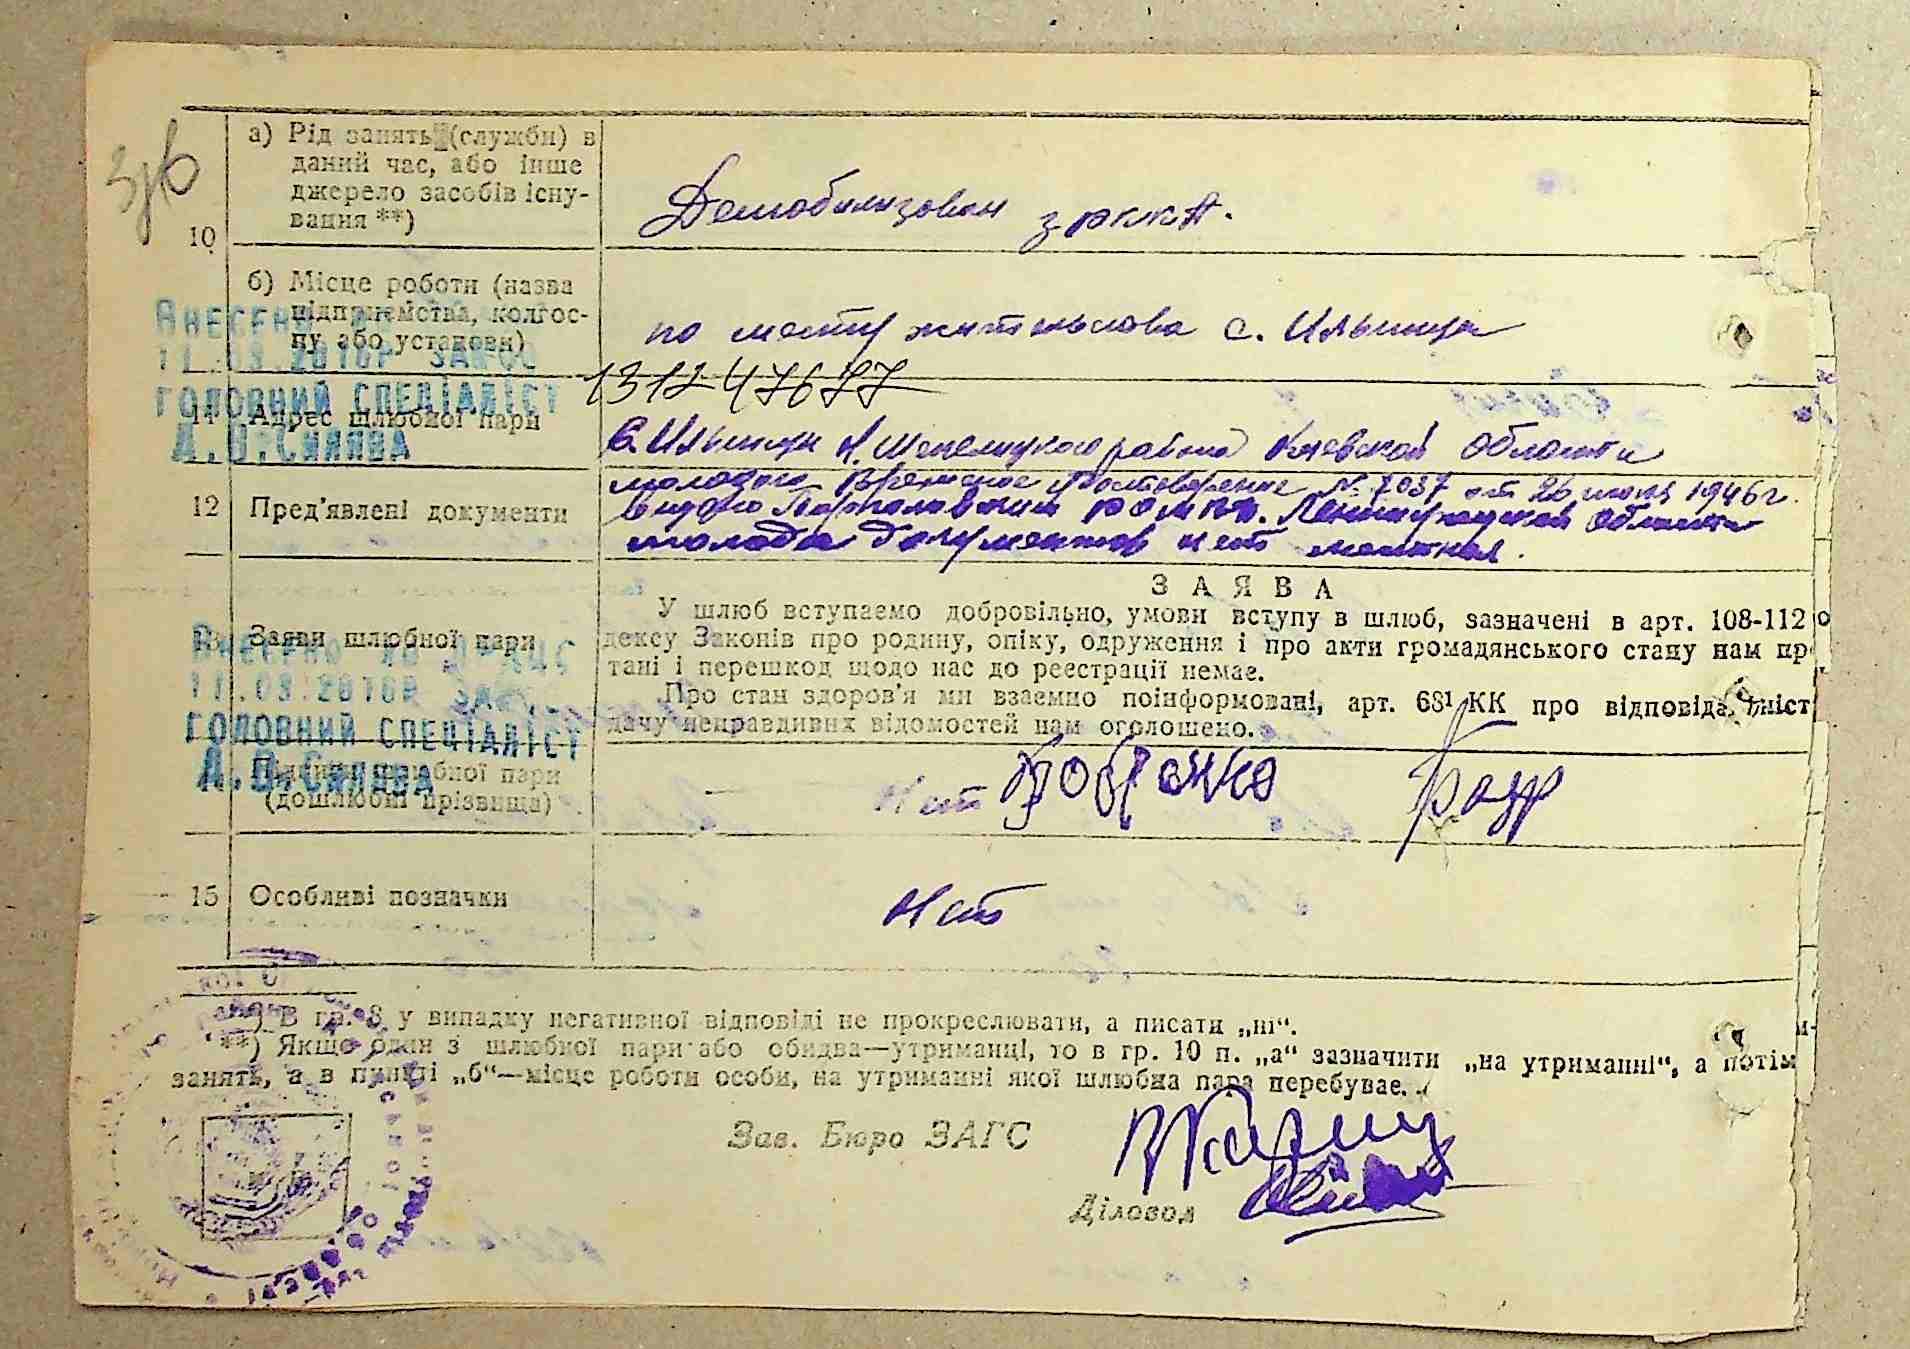 а) Рід занять (служби) в
даний час, або інше
джерело засобів існу-
вання **)
10
Демобилизован з РККА.
б) Місце роботи (назва
підприємства, колгос-
пу або установи)
по месту жительства с. Ильинцы
131247677
11 Адрес шлюбної пари
с. Ильинцы Киевской области
12 Пред'явлені документи
Временное удостоверение № 7037 от 26 июня 1946 г.
Ленинградской области
документов нет местная.
ВНЕСЕНО
11.03.2010Р
ГОЛОВНИЙ СПЕЦІАЛІСТ
А.О.СИЛЯВА
З А Я В А
13 Заяви шлюбної пари
У шлюб вступаємо добровільно, умови вступу в шлюб, зазначені в арт. 108-112
дексу Законів про родину, опіку, одруження і про акти громадянського стану нам
тані і перешкод щодо нас до реєстрації немає.
Про стан здоров'я ми взаємно поінформовані, арт. 68¹ КК про відповідальніст
дачу неправдивих відомостей нам оголошено.
ВНЕСЕНО ДО ДРАЦС
11.03.2010Р
ГОЛОВНИЙ СПЕЦІАЛІСТ
А.О.СИЛЯВА
Підписи шлюбної пари
(дошлюбні прізвища)
Нет
15 Особливі позначки
Нет
*) В гр. 8 у випадку негативної відповіді не прокреслювати, а писати „ні“.
**) Якщо один з шлюбної пари або обидва—утриманці, то в гр. 10 п. „а“ зазначити „на утриманні“, а потім
занять, а в пункті „б“—місце роботи особи, на утриманні якої шлюбна пара перебуває.
Зав. Бюро ЗАГС
Діловод